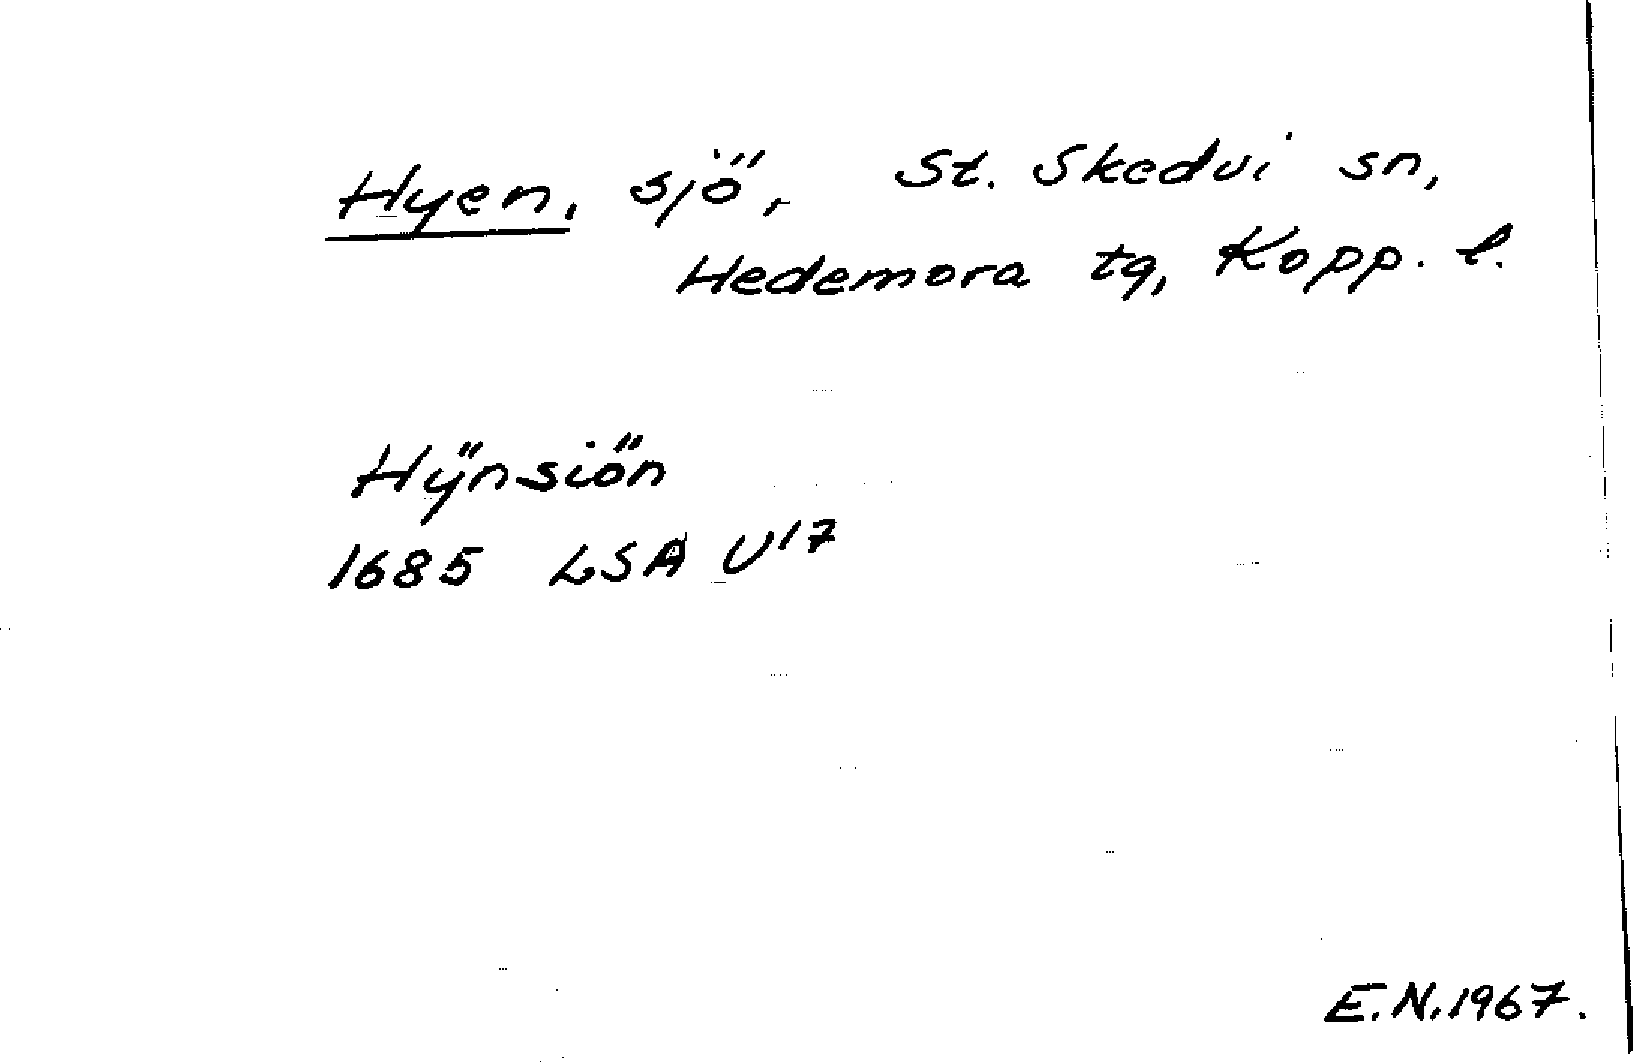 Hyen, sjö, St. Skedvi sn,
Hedemora tg, Kopp. l.
Hÿnsiön
1685 LSA U17
E.N.1967.